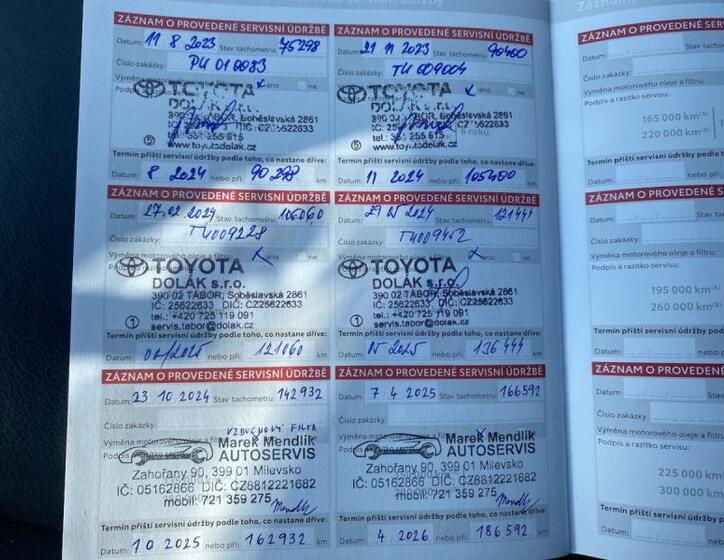 servisní údržby
ZÁZNAM O PROVEDENÉ SERVISNÍ ÚDRŽBĚ
Datum: 11 8 2023 Stav tachometru: 75298
Číslo zakázky:
PU 010083
Výměna motorového oleje a filtru: ano ne
TOYOTA
DOLÁK s.r.o.
390 02 TÁBOR, Soběslavská 2861
IČ: 25622633 DIČ: CZ25622633
www.toyotadolak.cz
Termín příští servisní údržby podle toho, co nastane dříve:
8 2024 nebo při: 90298 km
ZÁZNAM O PROVEDENÉ SERVISNÍ ÚDRŽBĚ
Datum: 21 11 2023 Stav tachometru: 90400
Číslo zakázky:
TU 009004
Výměna motorového oleje a filtru: ano ne
TOYOTA
DOLÁK s.r.o.
390 02 TÁBOR, Soběslavská 2861
IČ: 25622633 DIČ: CZ25622633
www.toyotadolak.cz
Termín příští servisní údržby podle toho, co nastane dříve:
Datum: 11 2024 nebo při: 105400 km
ZÁZNAM O PROVEDENÉ SERVISNÍ ÚDRŽBĚ
Datum: 27.02 2024 Stav tachometru: 106060
Číslo zakázky:
TU009228
Výměna motorového oleje a filtru: ne
TOYOTA
DOLÁK s.r.o.
390 02 TÁBOR, Soběslavská 2861
IČ: 25622633 DIČ: CZ25622633
tel.: +420 725 119 091
servis.tabor@dolak.cz
Termín příští servisní údržby podle toho, co nastane dříve:
Datum: 2025 nebo při: 121060 km
ZÁZNAM O PROVEDENÉ SERVISNÍ ÚDRŽBĚ
Datum: 2024 Stav tachometru: 121444
Číslo zakázky:
TU009452
Výměna motorového oleje a filtru: ne
TOYOTA
DOLÁK s.r.o.
390 02 TÁBOR, Soběslavská 2861
IČ: 25622633 DIČ: CZ25622633
tel.: +420 725 119 091
servis.tabor@dolak.cz
Termín příští servisní údržby podle toho, co nastane dříve:
Datum: 2025 nebo při: 136444 km
ZÁZNAM O PROVEDENÉ SERVISNÍ ÚDRŽBĚ
Datum: 23 10 2024 Stav tachometru: 142932
Číslo zakázky:
VZDUCHOVÝ FILTR
Výměna motorového oleje a
Marek Mendlík
AUTOSERVIS
Zahořany 90, 399 01 Milevsko
IČ: 05162866 DIČ: CZ8812221682
mobil: 721 359 275
Termín příští servisní údržby podle toho, co nastane dříve:
Datum: 10 2025 nebo při: 162932 km
ZÁZNAM O PROVEDENÉ SERVISNÍ ÚDRŽBĚ
Datum: 7 4 2025 Stav tachometru: 166592
Číslo zakázky:
Výměna motorového oleje a
Marek Mendlík
AUTOSERVIS
Zahořany 90, 399 01 Milevsko
IČ: 05162866 DIČ: CZ8812221682
mobil: 721 359 275
Termín příští servisní údržby podle toho, co nastane dříve:
Datum: 4 2026 nebo při: 186592 km
Záznamy
ZÁZNAM O PROVEDENÉ
Datum:
Číslo zakázky:
Výměna motorového oleje
Podpis a razítko servisu:
165 000 km(A)
220 000 km
Termín příští servisní údržby
Datum:
ZÁZNAM O PROVEDENÉ
Datum:
Číslo zakázky:
Výměna motorového oleje
Podpis a razítko servisu:
195 000 km(A)
260 000 km
Termín příští servisní
Datum:
ZÁZNAM O PROVEDENÉ
Datum:
Číslo zakázky:
Výměna motorového
Podpis a razítko servisu:
225 000 km
300 000 km
Termín příští servisní
Datum: